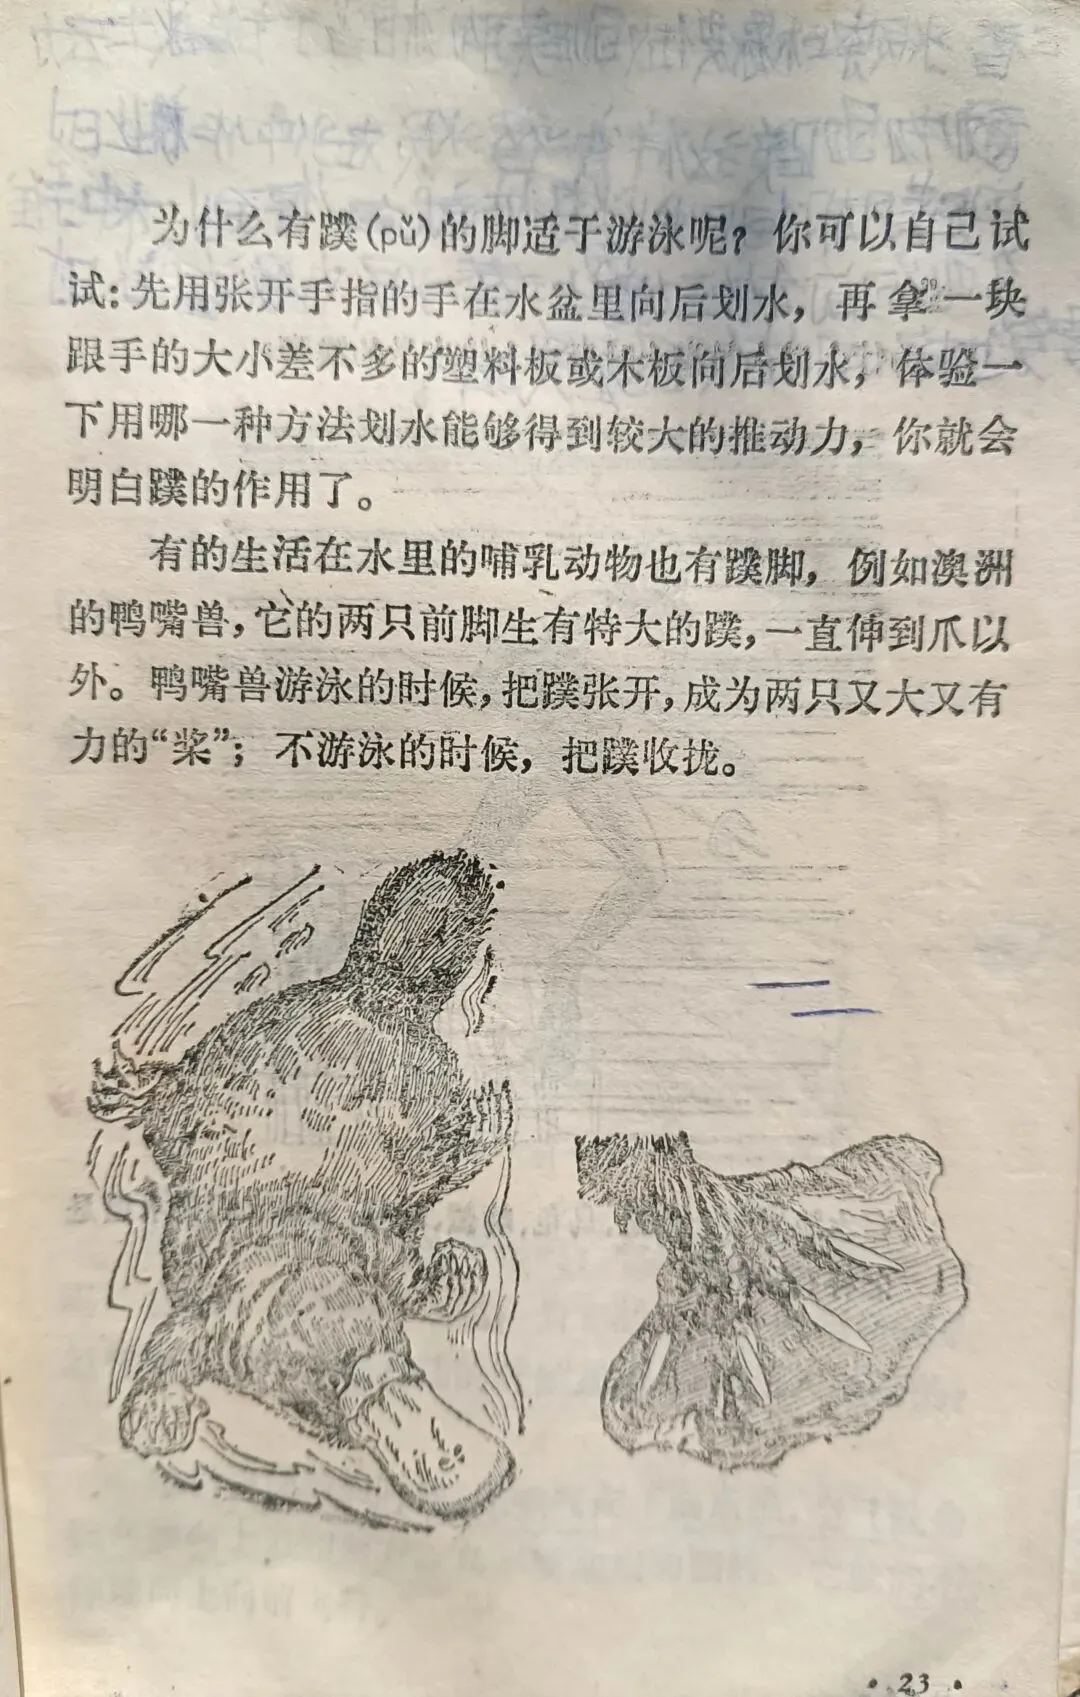 为什么有蹼(pǔ)的脚适于游泳呢？你可以自己试
试：先用张开手指的手在水盆里向后划水，再拿一块
跟手的大小差不多的塑料板或木板向后划水，体验一
下用哪一种方法划水能够得到较大的推动力，你就会
明白蹼的作用了。
有的生活在水里的哺乳动物也有蹼脚，例如澳洲
的鸭嘴兽，它的两只前脚生有特大的蹼，一直伸到爪以
外。鸭嘴兽游泳的时候，把蹼张开，成为两只又大又有
力的“桨”；不游泳的时候，把蹼收拢。
·23·